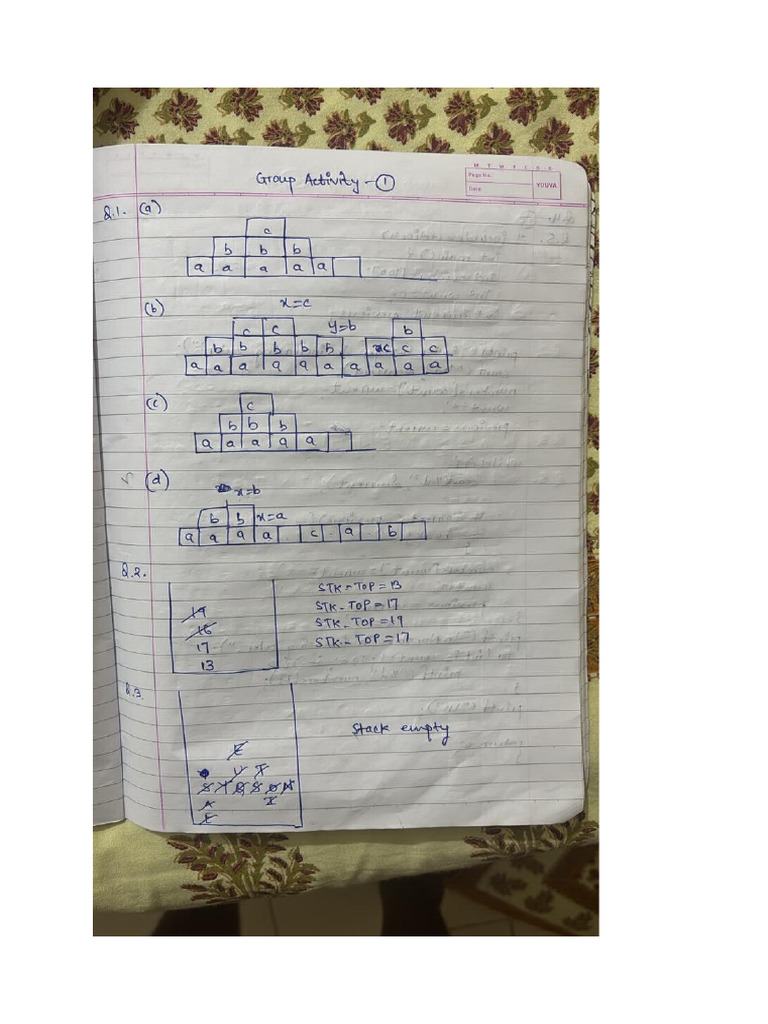 M T W T F S S
Page No.:
Date:
YOUVA
Group Activity - 1
Q.1. (a)
c
b b b
a a a a a
(b) x=c
c c y=b b
b b b b b c c c
a a a a a a a a a a
(c)
c
b b b
a a a a a
(d)
x=b
b b x=a
a a a a c a b
Q.2.
STK-TOP=13
19 STK-TOP=17
16 STK-TOP=19
17 STK-TOP=17
13
Q.3.
Stack empty
E
U T
S Y Q S O N
A I
E